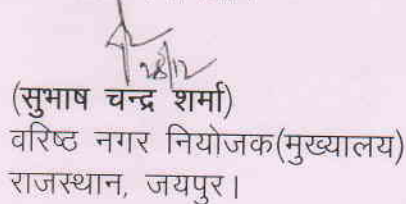 28/12
(सुभाष चन्द्र शर्मा)
वरिष्ठ नगर नियोजक(मुख्यालय)
राजस्थान, जयपुर।